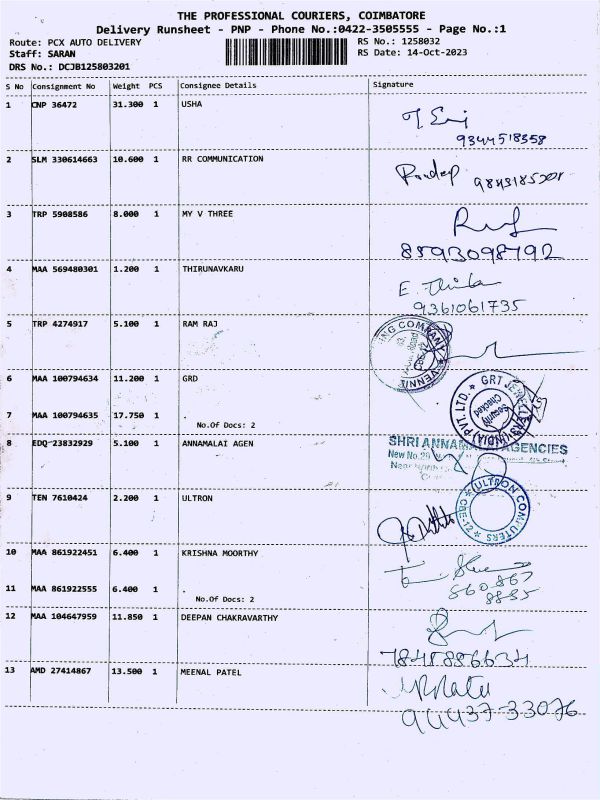 THE PROFESSIONAL COURIERS, COIMBATORE
Delivery Runsheet - PNP - Phone No.:0422-3505555 - Page No.:1
Route: PCX AUTO DELIVERY
RS No.: 1258032
Staff: SARAN
RS Date: 14-Oct-2023
DRS No.: DCJB125803201
S No Consignment No Weight PCS Consignee Details Signature
1 CNP 36472 31.300 1 USHA
9344518358
2 SLM 330614663 10.600 1 RR COMMUNICATION
3 TRP 5908586 8.000 1 MY V THREE
8593098792
4 MAA 569480301 1.200 1 THIRUNAVKARU
9361061735
5 TRP 4274917 5.100 1 RAM RAJ
ING COMPANY
6 MAA 100794634 11.200 1 GRD
GRT
(INDIA) PVT. LTD.
Security
Checked
7 MAA 100794635 17.750 1 .
No.Of Docs: 2
8 EDQ 23832929 5.100 1 ANNAMALAI AGEN
SHRI ANNAMALAI AGENCIES
New No.
Near
9 TEN 7610424 2.200 1 ULTRON
ULTRON COMPUTERS
CBE-12
10 MAA 861922451 6.400 1 KRISHNA MOORTHY
11 MAA 861922555 6.400 1 .
No.Of Docs: 2
12 MAA 104647959 11.850 1 DEEPAN CHAKRAVARTHY
7848886634
13 AMD 27414867 13.500 1 MEENAL PATEL
94437-33076